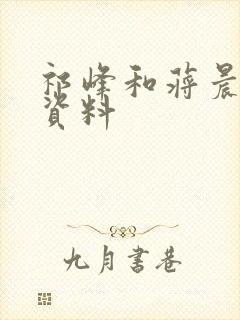 祁峰和蒋晨
资料
九月书巷